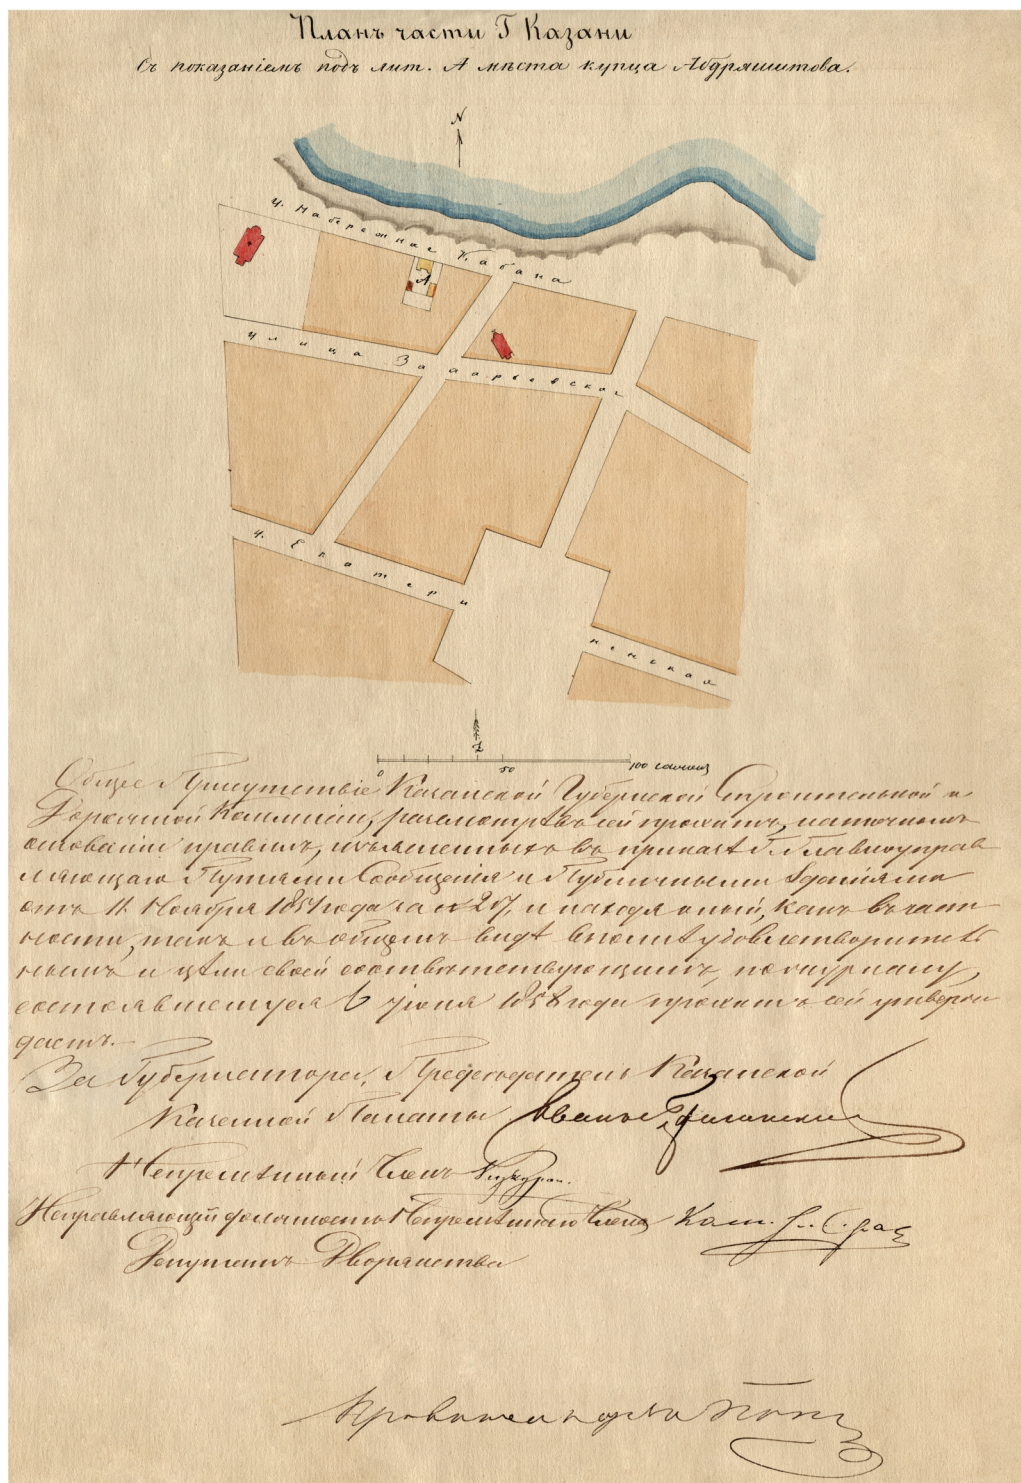 Планъ части Г Казани
съ показаніемъ подъ лит. А мѣста купца Абдряшитова.
N
у. Набережная Кабана
А
улица Захарьевская
у. Екатери
ненская
0 50 100 саженъ
Общее Присутствіе Казанской Губернской Строительной и
Дорожной Коммисіи, разсмотрѣвъ сей проэктъ, на точномъ
основаніи правилъ, изъясненныхъ въ приказѣ Г. Главноуправ
ляющаго Путями Сообщенія и Публичными Зданіями
отъ 11 Ноября 1851 года за № 217, и находя оный, какъ въ част
ности, такъ и въ общемъ видѣ вполнѣ удовлетворитель
нымъ и цѣли своей соотвѣтствующимъ, по журналу,
состоявшемуся 6 Іюня 1858 года проэктъ сей утверж
даетъ.
За Губернатора, Председатель Казанской
Казенной Палаты
Непремѣнный Членъ
Исправляющій должность Непремѣннаго Члена
Депутатъ Дворянства